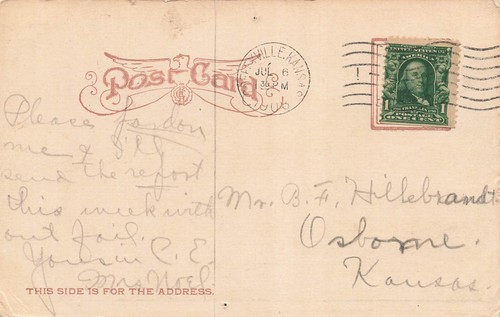 Post Card
JUL 6
3 PM
UNITED STATES OF
AMERICA
1 1
POSTAGE
ONE CENT
Please pardon
me & I'll
send the report
this week with
out fail.
Yours in C. E.
Mrs Noel
Mr. B. F. Hillebrandt.
Osborne.
Kansas.
THIS SIDE IS FOR THE ADDRESS.